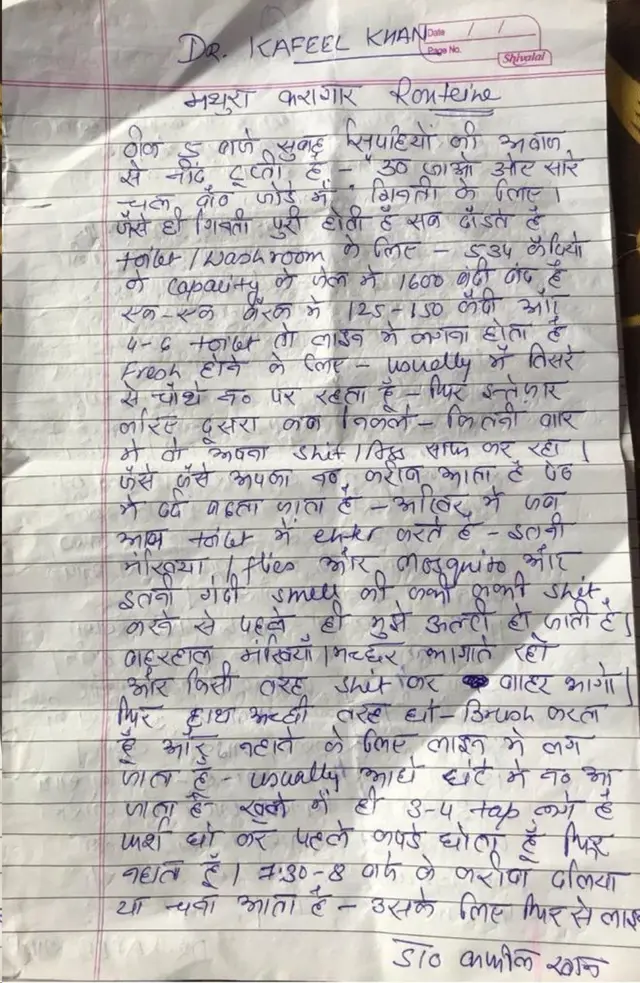 DR. KAFEEL KHAN
Date / /
Page No.
Shivalal
मथुरा कारागार Routeine
ठीक 5 बजे सुबह सिपाहियों की आवाज
से नींद टूटती है - "उठ जाओ और सारे
चल बैठ जोडे में" गिनती के लिए।
जैसे ही गिनती पुरी होती है सब दौडते है
toilet / washroom के लिए - 534 कैदियो
के capacity के जेल में 1600 बंदी बंद है
एक-एक बैरक में 125-150 कैदी और
4-6 toilet तो लाइन में लगना होता है
Fresh होने के लिए - usually मैं तिसरे
से चौथे न० पर रहता हूँ - फिर इन्तेजार
करिए दूसरा कब निकले - कितनी बार
मे वो अपना shit / साफ कर रहा।
जैसे जैसे आपका न० करीब आता है पेट
में दर्द बढता जाता है - आखिर में जब
आप toilet में enter करते है - इतनी
मंखिया / flies और mosquito और
इतनी गंदी smell की कभी कभी shit
करने से पहले ही मुझे उल्टी हो जाती है।
बहरहाल मंखियाँ / मच्छर भागाते रहो
और किसी तरह shit कर बाहर भागो।
फिर हाथ अच्छी तरह धो - Brush करता
हूँ और नहाने के लिए लाइन मे लग
जाता हूँ - usually आधे घंटे मे न० आ
जाता है खुले में ही 3-4 tap लगे है
फर्श धो कर पहले कपडे धोता हूँ फिर
नहाता हूँ। 7:30-8 बजे के करीब दलिया
या चना आता है - उसके लिए फिर से लाइन
डा० कफील खान